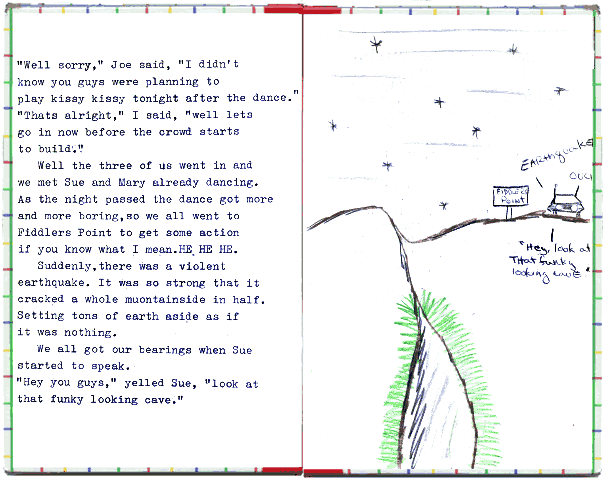 "Well sorry," Joe said, "I didn't
know you guys were planning to
play kissy kissy tonight after the dance."
"Thats alright," I said, "well lets
go in now before the crowd starts
to build."
Well the three of us went in and
we met Sue and Mary already dancing.
As the night passed the dance got more
and more boring,so we all went to
Fiddlers Point to get some action
if you know what I mean.HE HE HE.
Suddenly,there was a violent
earthquake. It was so strong that it
cracked a whole muontainside in half.
Setting tons of earth aside as if
it was nothing.
We all got our bearings when Sue
started to speak.
"Hey you guys," yelled Sue, "look at
that funky looking cave."
EARthquake
OUCH
FIDDLERS
POINT
"Hey, look at
THat funky
looking cave"